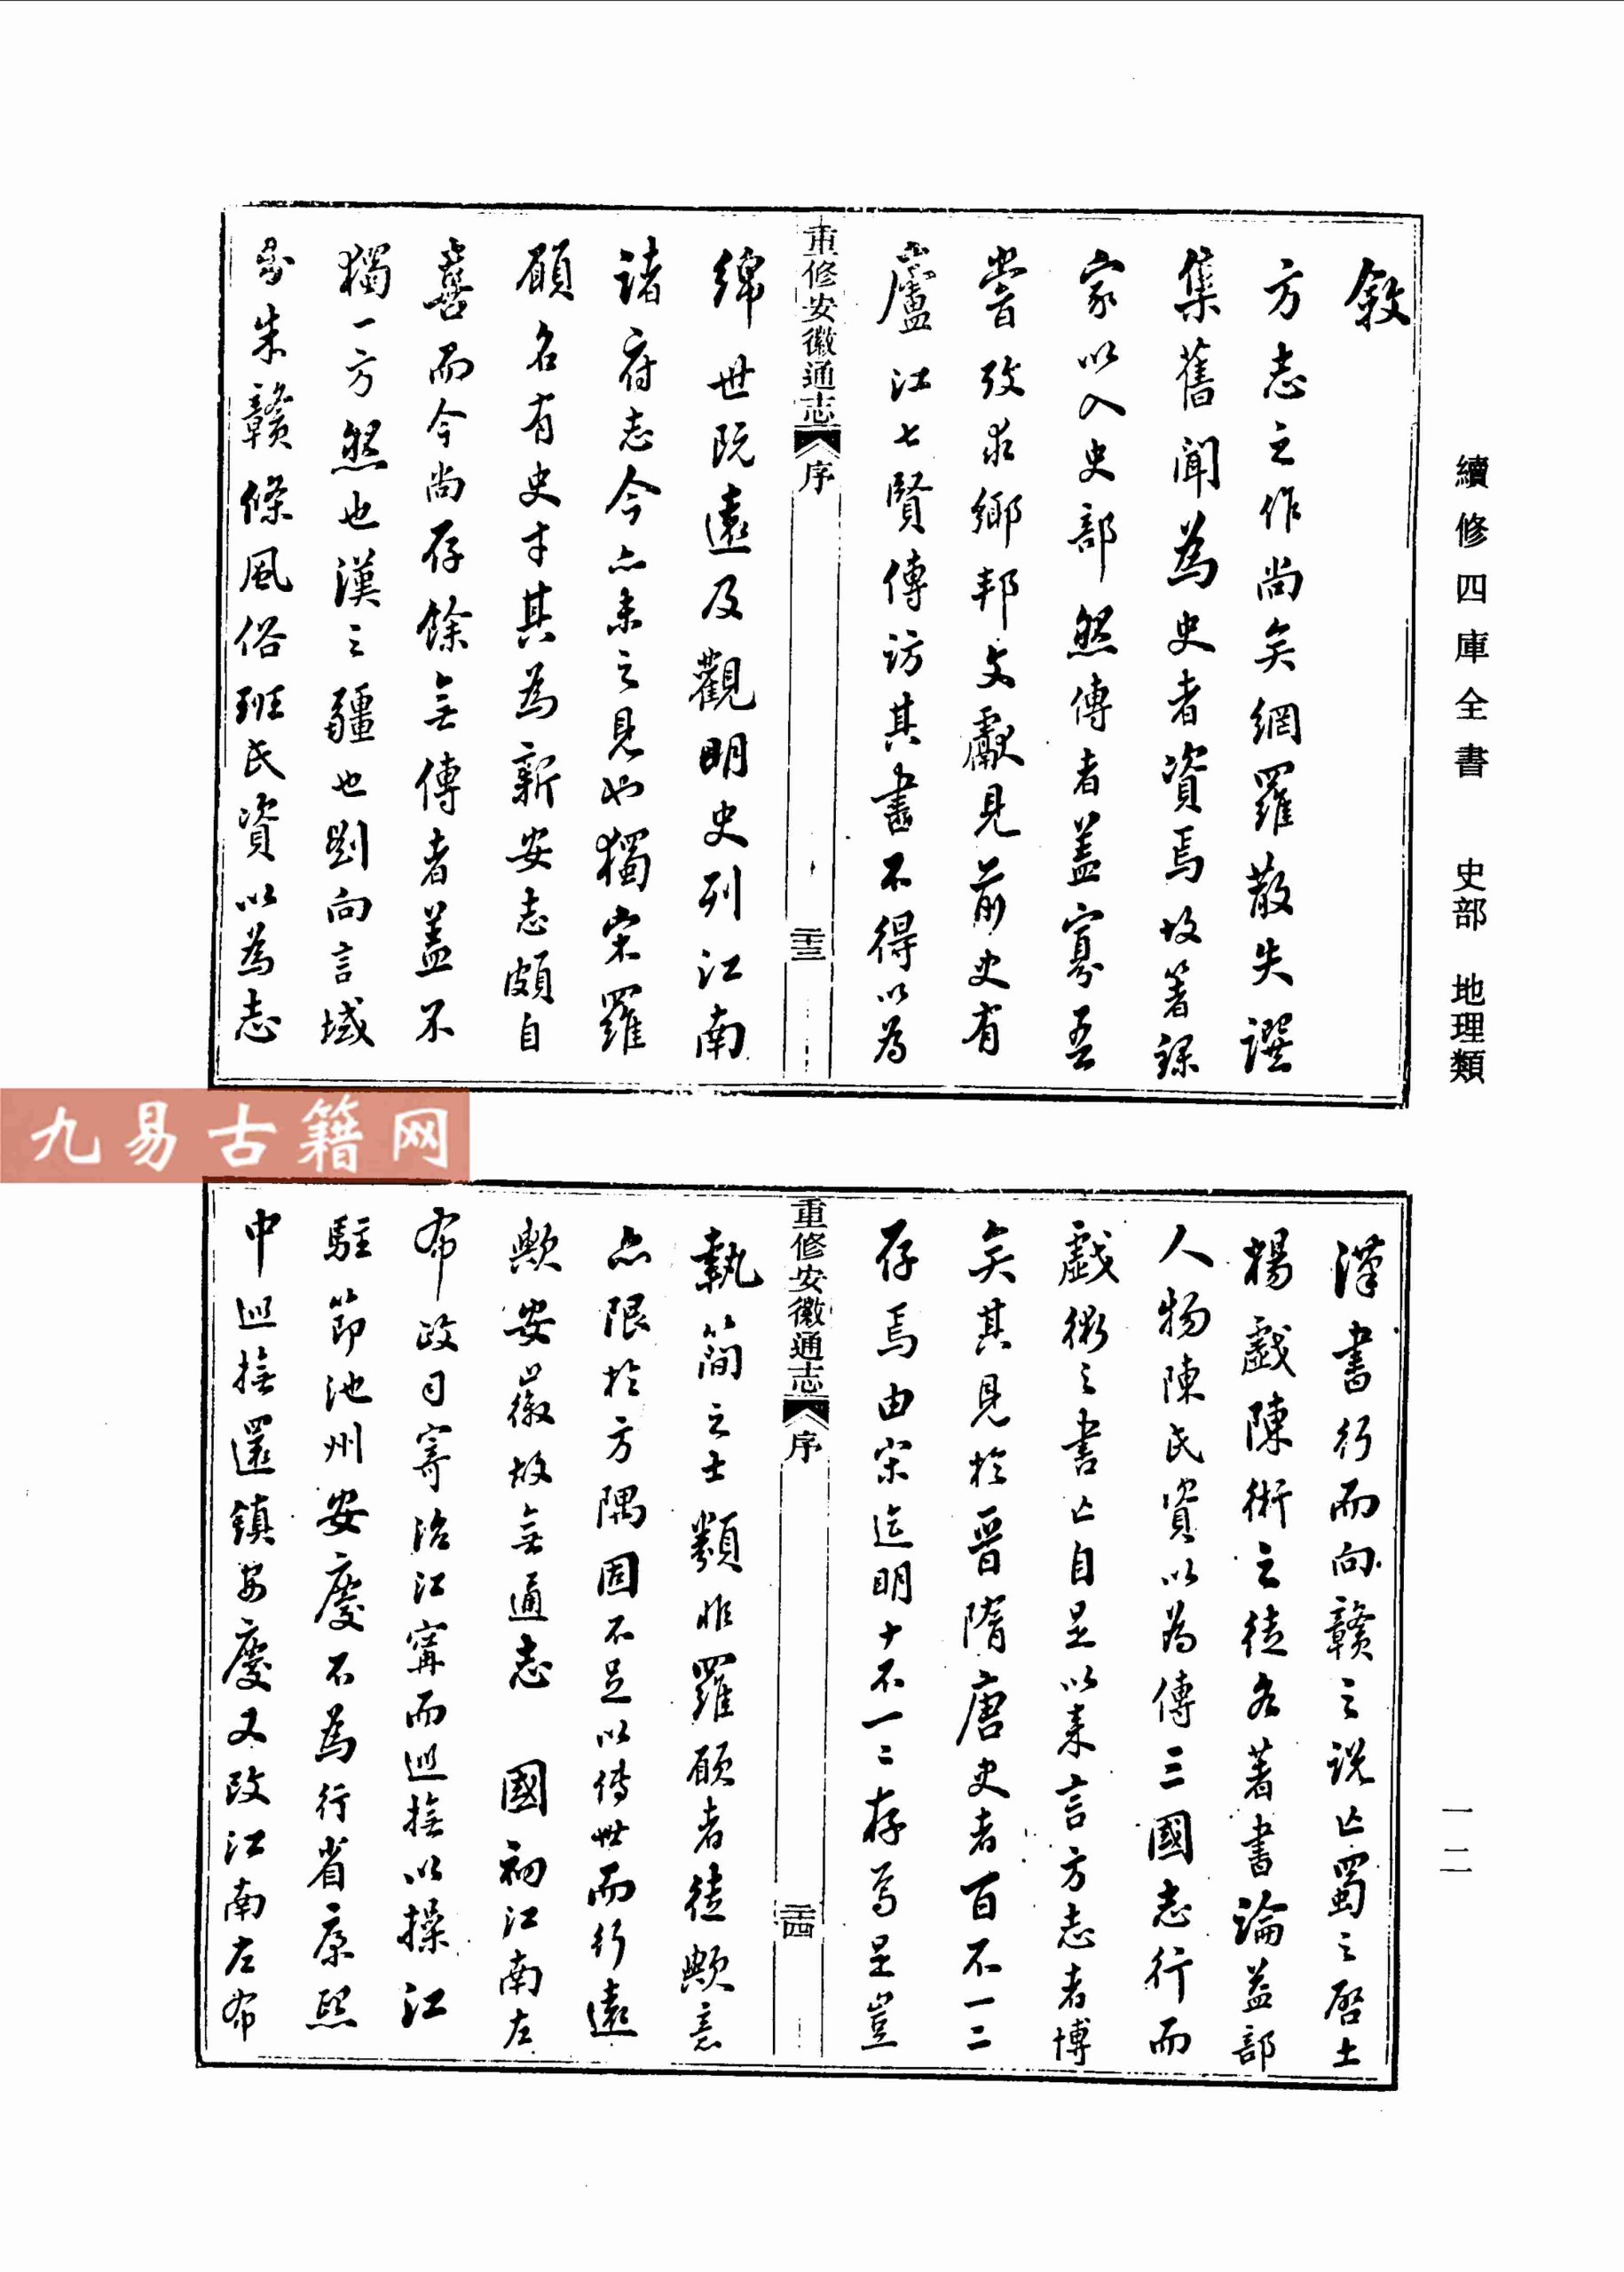 續修四庫全書 史部 地理類
敘
方志之作尚矣網羅散失譔
集舊聞為史者資焉故著錄
家以入史部然傳者蓋寡吾
嘗攷求鄉邦文獻見前史有
廬江七賢傳訪其書不得以為
重修安徽通志 序 二十三
緜世既遠及觀明史列江南
諸府志今亦未之見也獨宋羅
願名有史才其為新安志頗自
喜而今尚存餘無傳者蓋不
獨一方然也漢之疆也劉向言域
分朱贛條風俗班氏資以為志
一二
漢書行而向贛之說亡蜀之啓土
楊戲陳術之徒各著書論益部
人物陳氏資以為傳三國志行而
戲術之書亡自是以來言方志者博
矣其見於晉隋唐史者百不一二
存焉由宋迄明十不一二存焉是豈
重修安徽通志 序 二十四
執簡之士類非羅願者徒歟意
亦限於方隅固不足以傳世而行遠
歟安徽故無通志 國初江南左
布政司寄治江寧而巡撫以操江
駐節池州安慶不為行省康熙
中巡撫還鎮安慶又改江南左布
九易古籍网